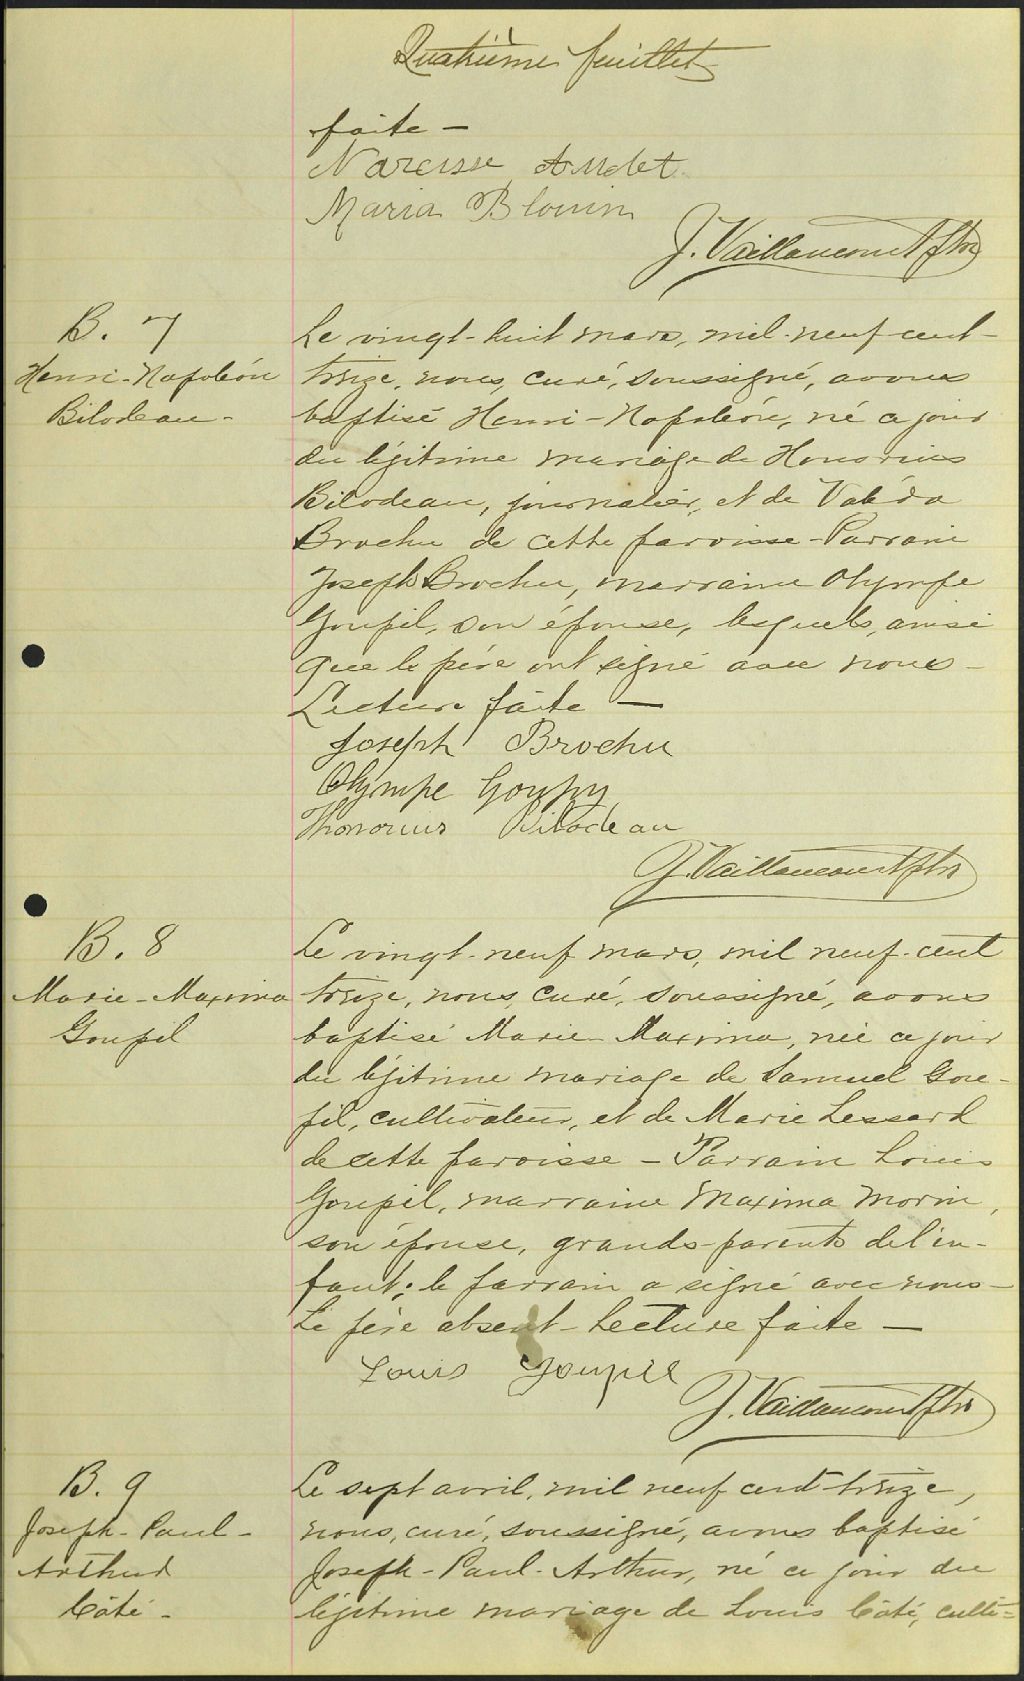 Quatrième feuillet
faite —
Narcisse Audet
Maria Blouin
J. Vaillancourt Ptre
B. 7
Henri-Napoléon
Bilodeau -
Le vingt-huit mars, mil-neuf-cent-
treize, nous, curé, soussigné, avons
baptisé Henri-Napoléon, né ce jour
du légitime mariage de Honorius
Bilodeau, journalier, et de Valéda
Brochu de cette paroisse - Parrain
Joseph Brochu, marraine Olympe
Goupil, son épouse, lesquels, ainsi
que le père ont signé avec nous -
Lecture faite —
Joseph Brochu
Olympe Goupy
Thonorius Bilodeau
J. Vaillancourt Ptre
B. 8
Marie-Maxima
Goupil
Le vingt-neuf mars, mil neuf-cent
treize, nous, curé, soussigné, avons
baptisé Marie Maxima, née ce jour
du légitime mariage de Samuel Gou-
pil, cultivateur, et de Marie Lessard
de cette paroisse - Parrain Louis
Goupil, marraine Maxima Morin,
son épouse, grands-parents de l'en-
fant; le parrain a signé avec nous -
Le père absent - Lecture faite —
Louis Goupil
J. Vaillancourt Ptre
B. 9
Joseph-Paul-
Arthur
Côté -
Le sept avril, mil neuf cent treize,
nous, curé, soussigné, avons baptisé
Joseph-Paul-Arthur, né ce jour du
légitime mariage de Louis Côté, culti-